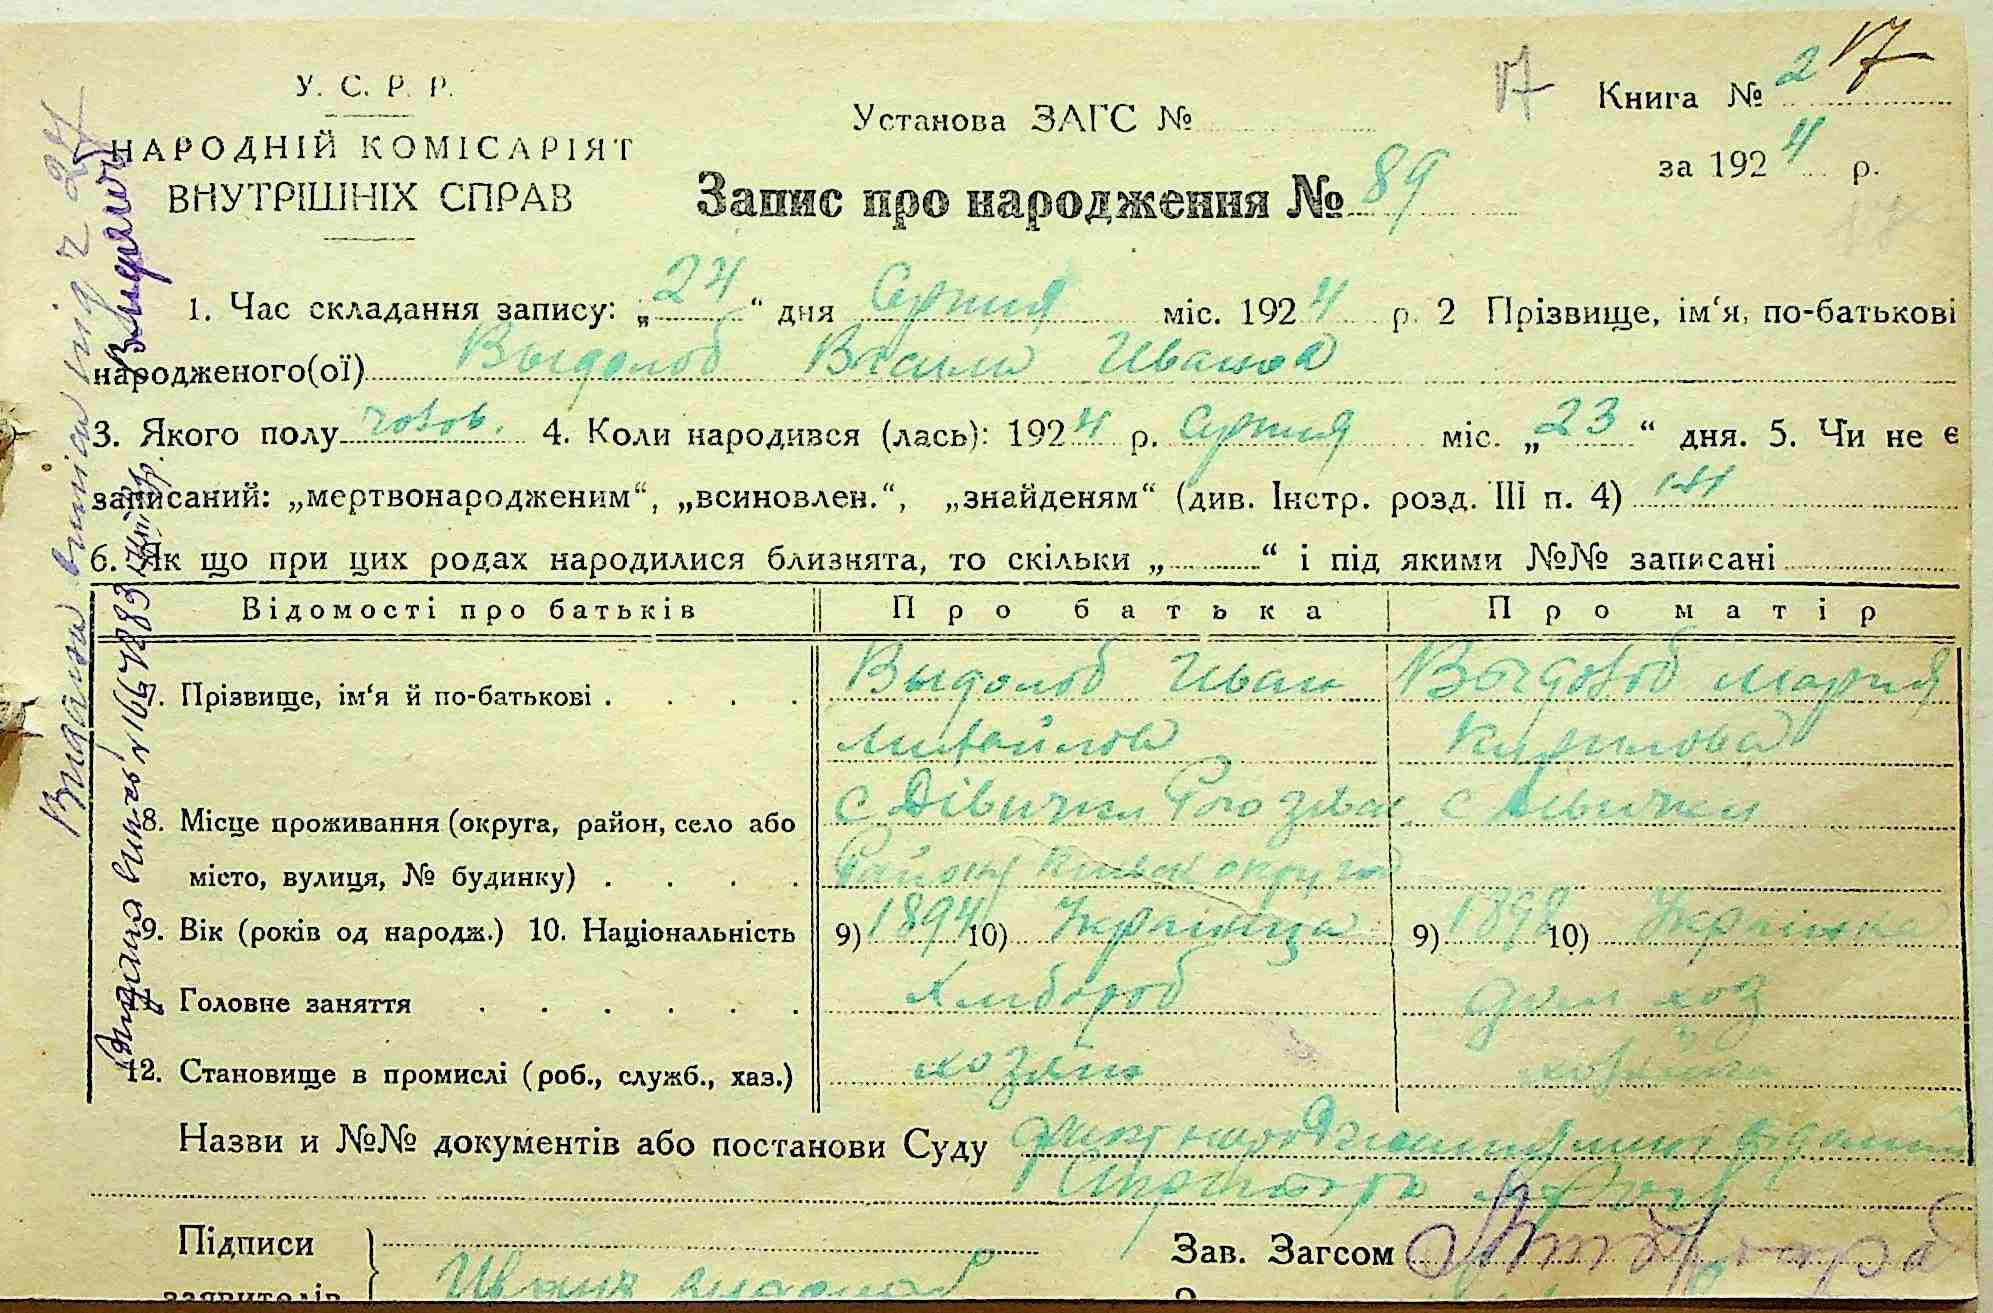 У. С. Р. Р.
НАРОДНІЙ КОМІСАРІЯТ
ВНУТРІШНІХ СПРАВ
Установа ЗАГС №
17
Книга № 2 17
за 1924 р.
Запис про народження № 89
1. Час складання запису: „24“ дня Серпня міс. 1924 р. 2 Прізвище, ім‘я, по-батькові
народженого(ої) Выдолоб Василь Иванов
3. Якого полу чолов. 4. Коли народився (лась): 1924 р. Серпня міс. „23“ дня. 5. Чи не є
записаний: „мертвонародженим“, „всиновлен.“, „знайденям“ (див. Інстр. розд. III п. 4)
6. Як що при цих родах народилися близнята, то скільки „ “ і під якими №№ записані
Відомості про батьків Про батька Про матір
7. Прізвище, ім‘я й по-батькові Выдолоб Иван Выдолоб Мария
Михайлов Кирилова
8. Місце проживання (округа, район, село або с Дівички с Дівички
місто, вулиця, № будинку) Району округи
9. Вік (років од народж.) 10. Національність 9) 1894 10) Українца 9) 1898 10) Українка
Головне заняття Хлибороб дом хоз
12. Становище в промислі (роб., служб., хаз.) хозяин
Назви и №№ документів або постанови Суду
Підписи
заявителів
Зав. Загсом
Видана виписка
Видана